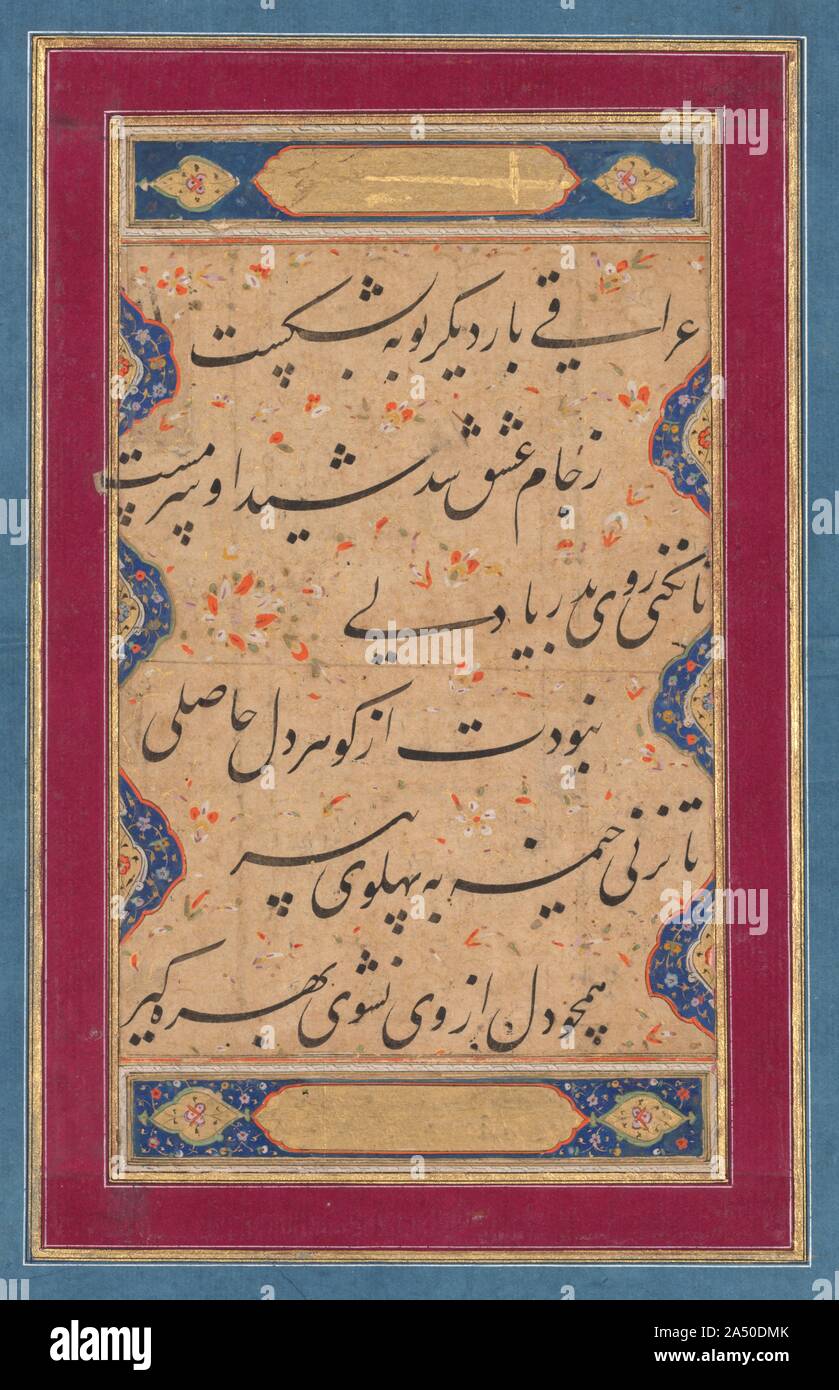 عراقی بار دیگر توبه بشکست
ز جام عشق شد شیدا و سرمست
تا نکنی روی بدریا دلی
نبودت از گوهر دل حاصلی
تا نزنی خیمه به پهلوی پیر
همچو دل از وی نشوی بهره گیر
alamy
Image ID: 2A50DMK
www.alamy.com